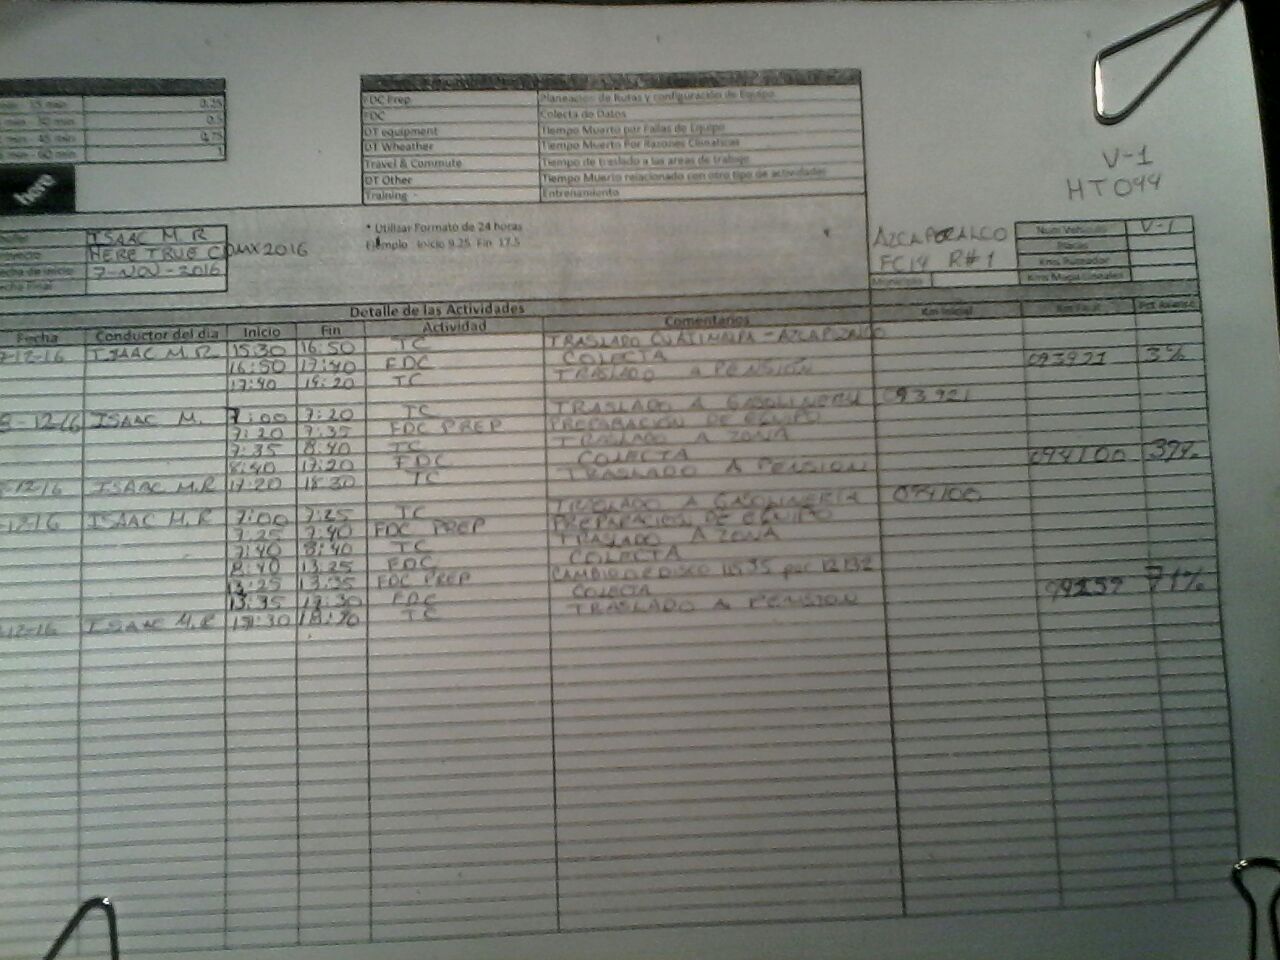 15 min 0.25
30 min 0.5
45 min 0.75
60 min 1
here
FDC Prep Planeación de Rutas y configuración de Equipo
FDC Colecta de Datos
DT equipment Tiempo Muerto por Fallas de Equipo
DT Wheather Tiempo Muerto Por Razones Climaticas
Travel & Commute Tiempo de traslado a las areas de trabajo
DT Other Tiempo Muerto relacionado con otro tipo de actividades
Training - Entrenamiento
V-1
HT044
ISAAC M.R
HERE TRUE CDMX2016
7-NOV-2016
* Utilizar Formato de 24 horas
Ejemplo Inicio 9.25 Fin 17.5
AZCAPOZALCO
FC14 R#1
Num Vehiculo V-1
Placas
Detalle de las Actividades
Fecha Conductor del dia Inicio Fin Actividad Comentarios Km Inicial
7-12-16 ISAAC M.R 15:30 16:50 TC TRASLADO CUAJIMALPA - AZCAPOZALCO
16:50 17:40 FDC COLECTA 093921 3%
17:40 19:20 TC TRASLADO A PENSIÓN
8-12/6 ISAAC M. 7:00 7:20 TC TRASLADO A GASOLINERÍA 093921
7:20 7:35 FDC PREP PREPARACIÓN DE EQUIPO
7:35 8:40 TC TRASLADO A ZONA
8:40 17:20 FDC COLECTA 094100 37%
-12-16 ISAAC M.R 17:20 18:30 TC TRASLADO A PENSIÓN
-12-16 ISAAC M.R 7:00 7:25 TC TRASLADO A GASOLINERÍA 094100
7:25 7:40 FDC PREP PREPARACIÓN DE EQUIPO
7:40 8:40 TC TRASLADO A ZONA
8:40 13:25 FDC COLECTA
13:25 13:35 FDC PREP CAMBIO DE DISCO por
13:35 FDC COLECTA 71%
-12-16 ISAAC M.R TC TRASLADO A PENSIÓN